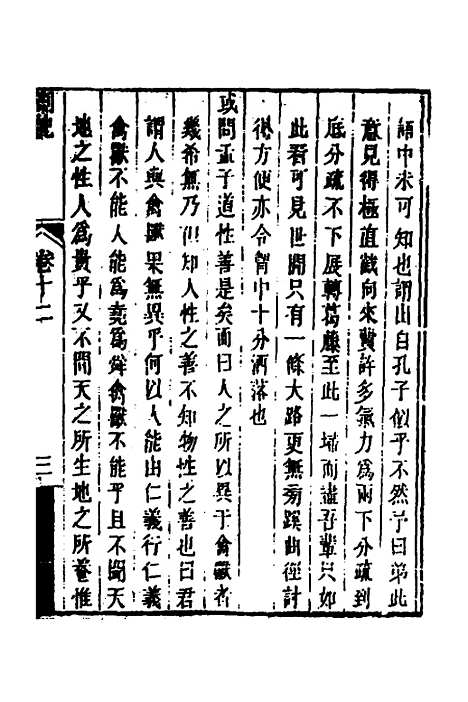 語中未可知也謂出自孔子似乎不然予曰第此
意見得極直截向來費許多氣力為兩下分疏到
底分疏不下展轉葛藤至此一場而盡吾輩只如
此看可見世間只有一條大路更無旁蹊曲徑計
後方便亦令胷中十分洒落也
或問孟子道性善是矣而曰人之所以異于禽獸者
幾希無乃但知人性之善不知物性之善也曰君
謂人與禽獸果無異乎何以人能由仁義行仁義
禽獸不能人能為堯為舜禽獸不能乎且不聞天
地之性人為貴乎又不聞天之所生地之所養惟
卷十二
三